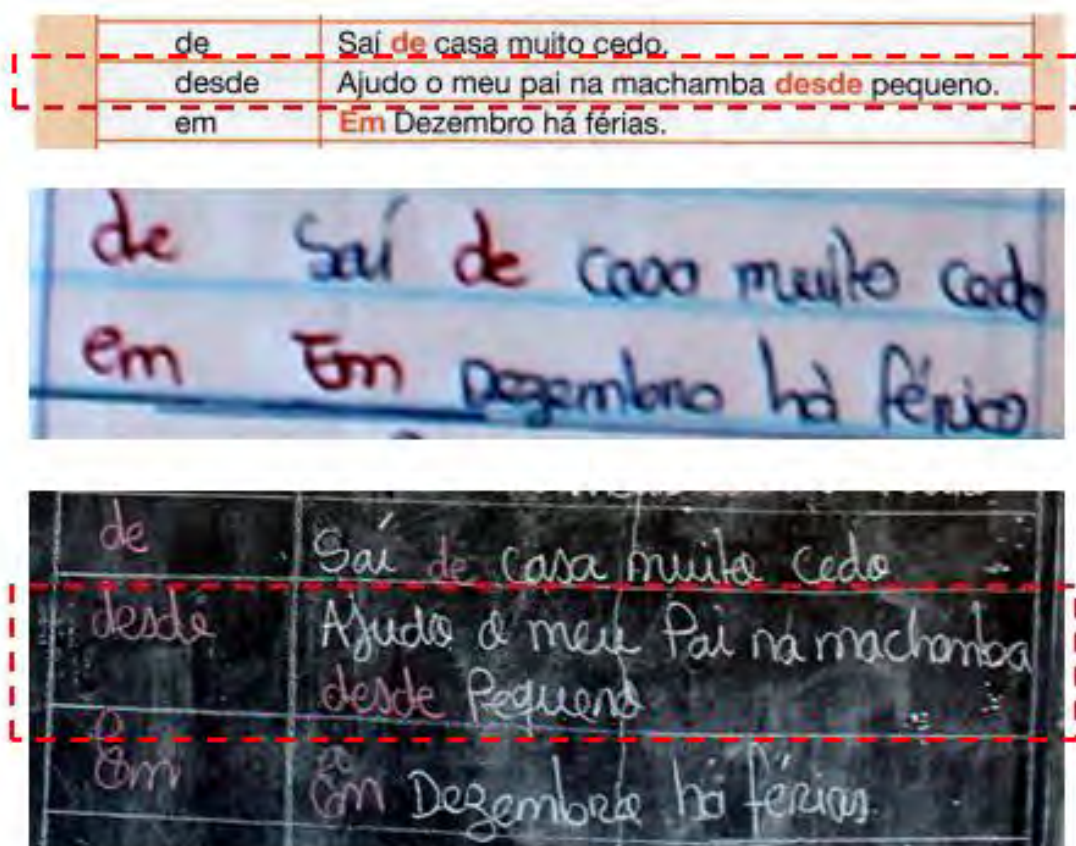 de Saí de casa muito cedo.
desde Ajudo o meu pai na machamba desde pequeno.
em Em Dezembro há férias.
de Saí de casa muito cedo
em Em Dezembro há férias
de Saí de casa muito cedo
desde Ajudo o meu Pai na machamba
desde Pequeno
em Em Dezembro há férias.